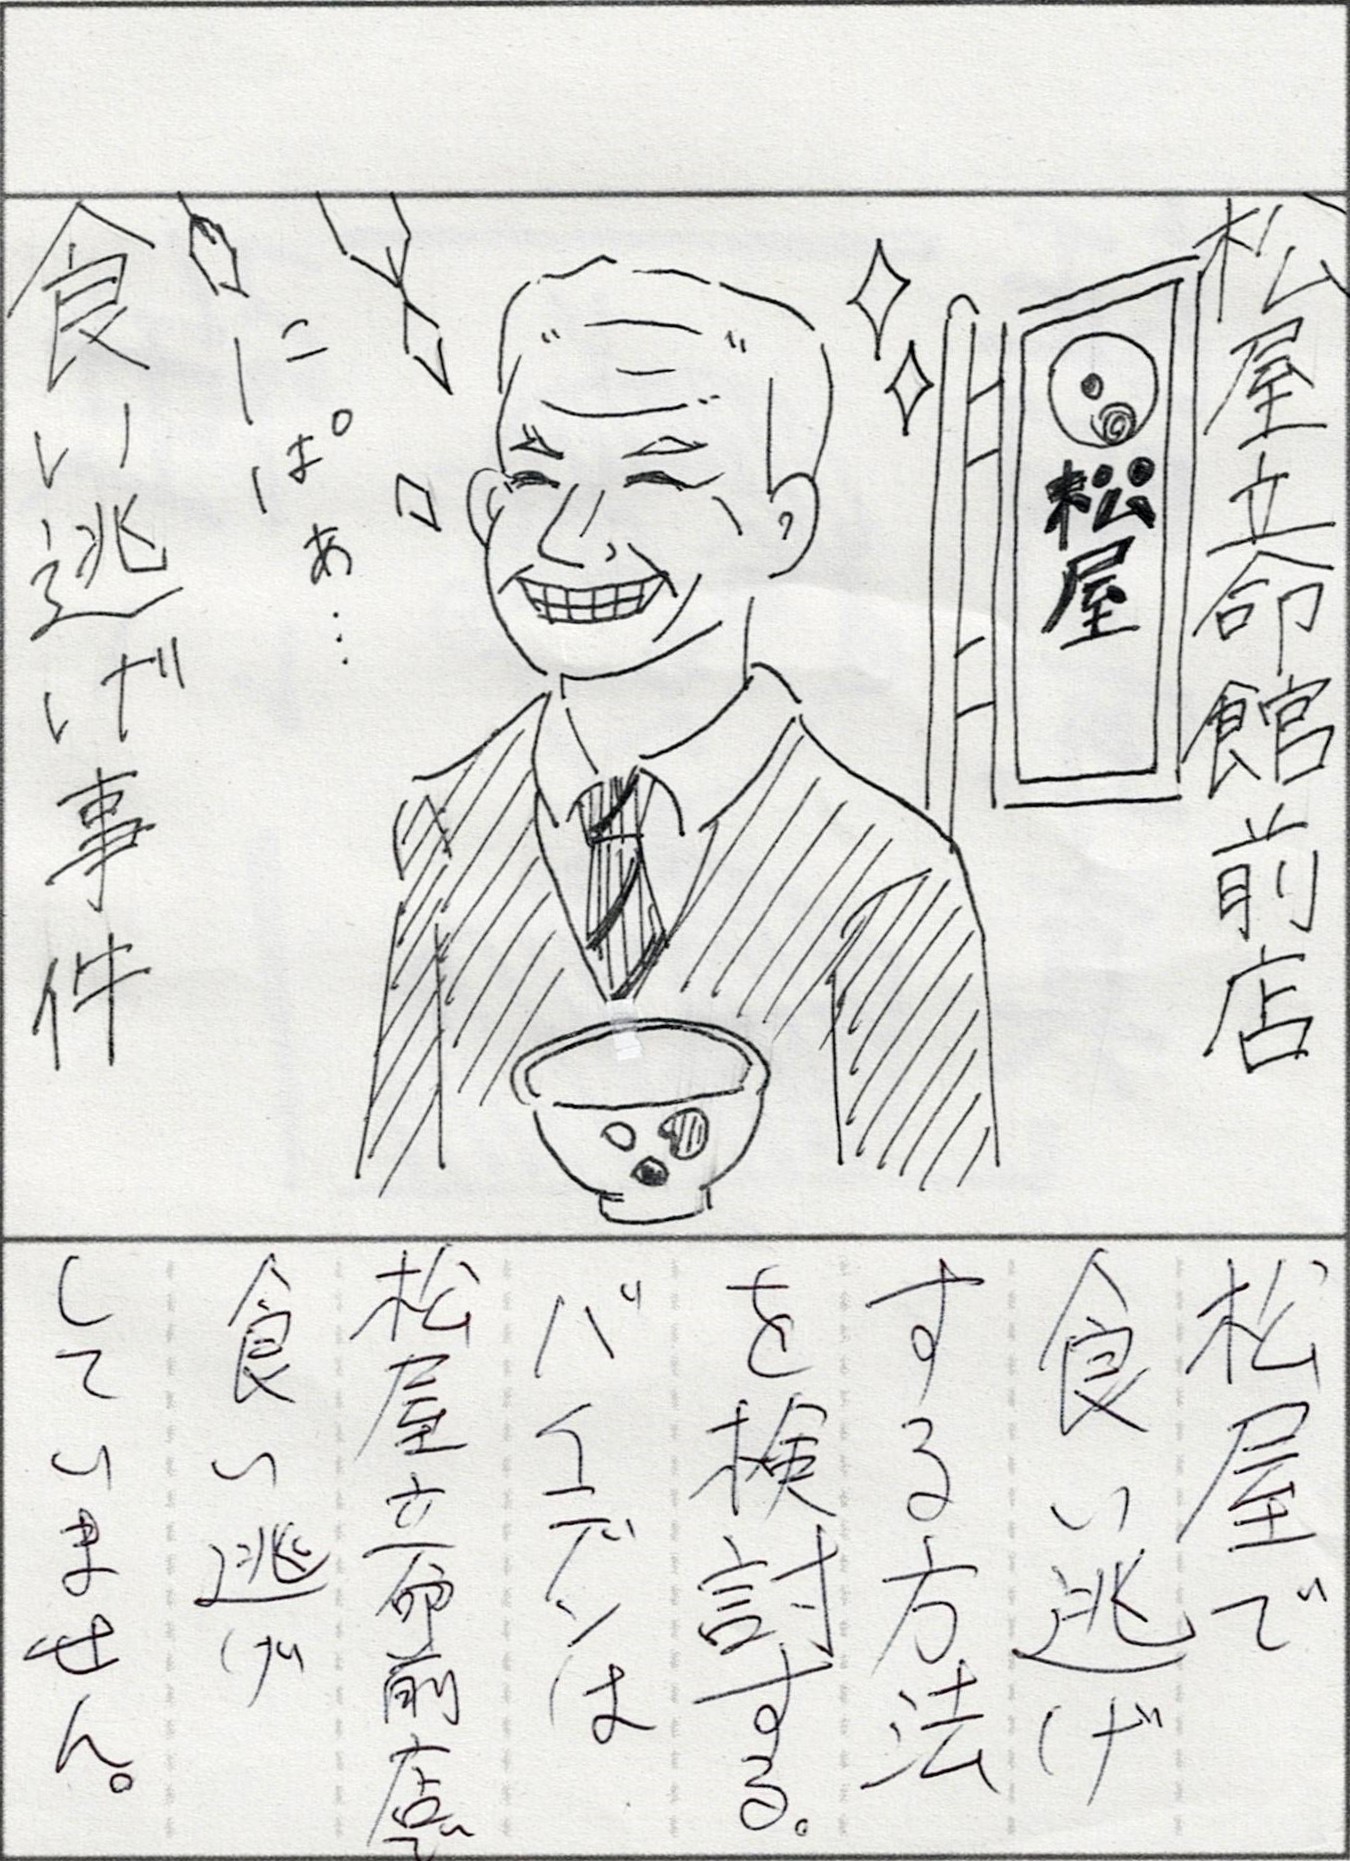 松屋立命館前店
松屋
にぱぁ…
食い逃げ事件
松屋で
食い逃げ
する方法
を検討する。
バイデンは
松屋立命前店で
食い逃げ
していません。